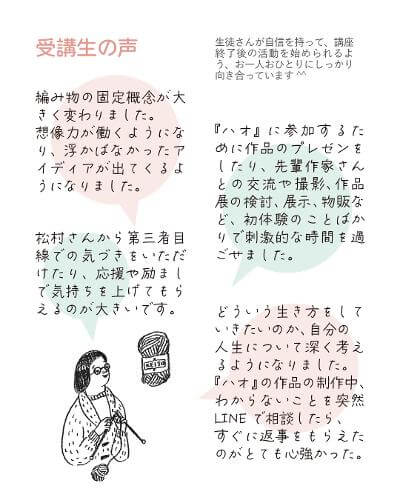 受講生の声
生徒さんが自信を持って、講座
終了後の活動を始められるよ
う、お一人おひとりにしっかり
向き合っています^^
編み物の固定概念が大
きく変わりました。
想像力が働くようにな
り、浮かばなかったア
イディアが出てくるよ
うになりました。
『ハオ』に参加するた
めに作品のプレゼンを
したり、先輩作家さん
との交流や撮影、作品
展の検討、展示、物販な
ど、初体験のことばか
りで刺激的な時間を過
ごせました。
松村さんから第三者目
線での気づきをいただ
けたり、応援や励まし
で気持ちを上げてもら
えるのが大きいです。
どういう生き方をして
いきたいのか、自分の
人生について深く考え
るようになりました。
『ハオ』の作品の制作中、
わからないことを突然
LINEで相談したら、
すぐに返事をもらえた
のがとても心強かった。
KEITO